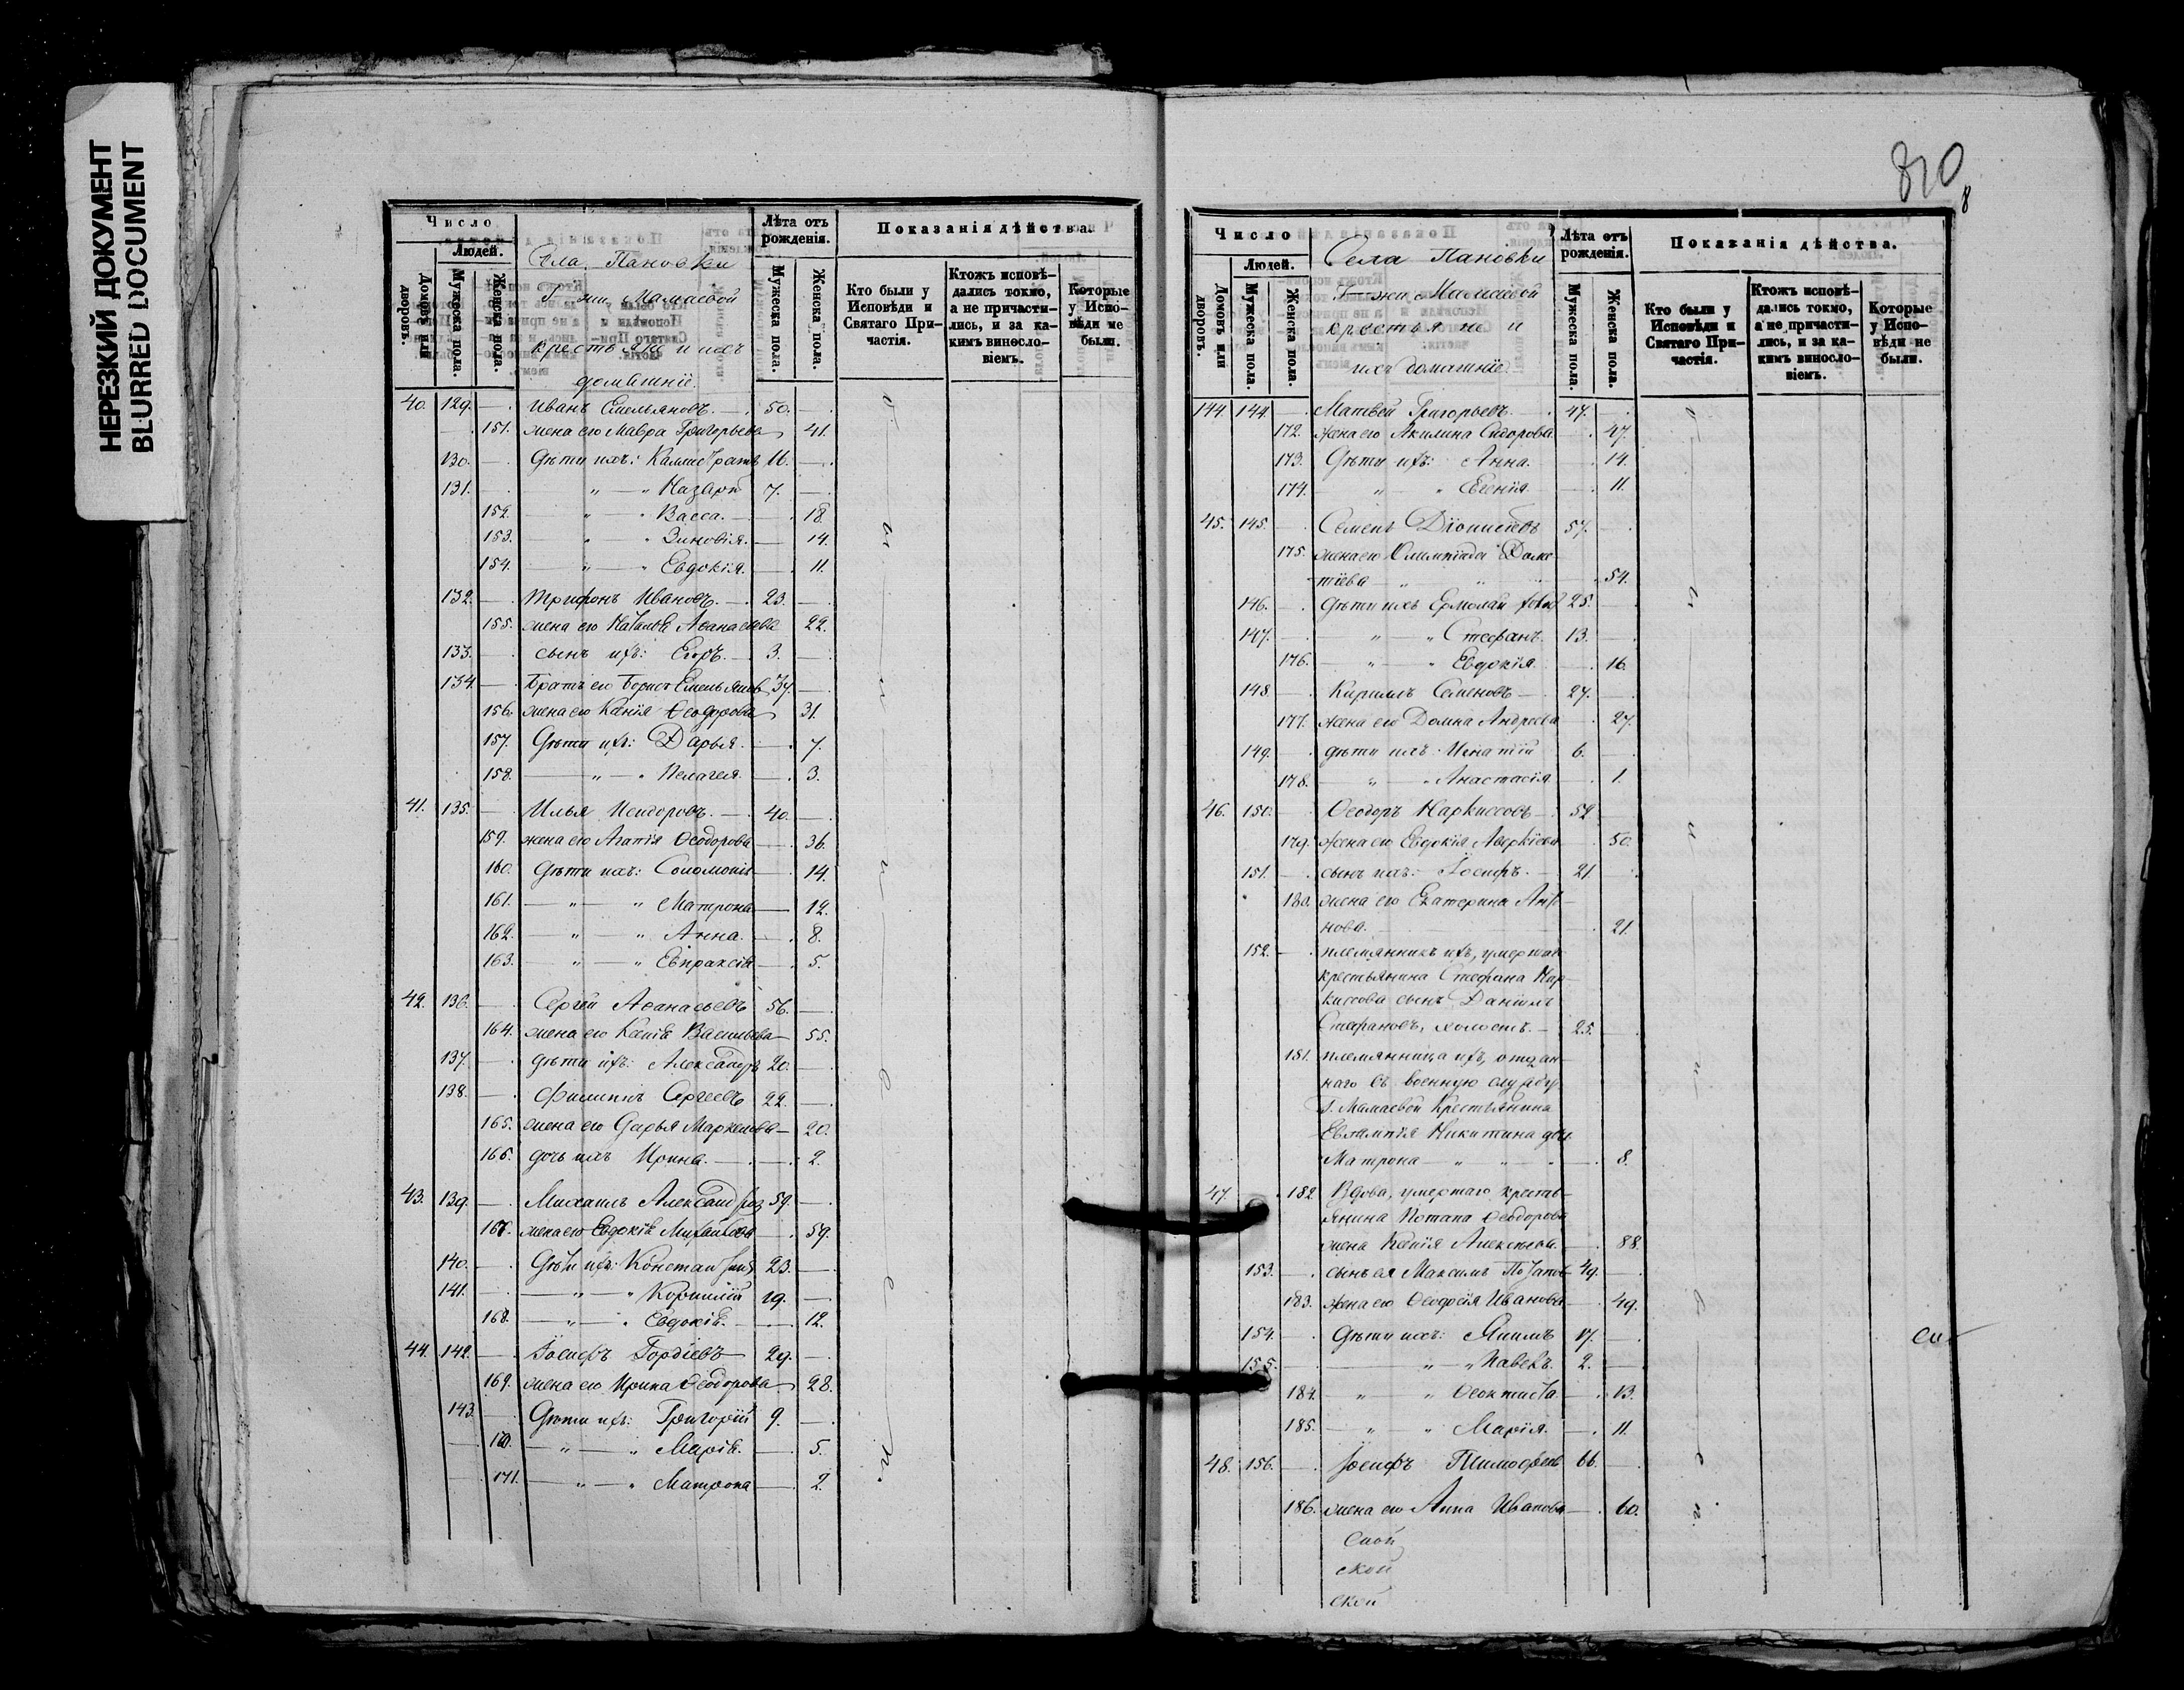 НЕРЕЗКИЙ ДОКУМЕНТ
BLURRED DOCUMENT
Число
Людей.
Домовъ или дворовъ.
Мужеска пола.
Женска пола.
Села Пановки
Г-жи Мамаевой
крестьяне и ихъ
домашніе.
Лѣта отъ рожденія.
Мужеска пола.
Женска пола.
Показанія дѣйства.
Кто были у Исповѣди и Святаго Причастія.
Ктожъ исповѣдались токмо, а не причастились, и за какимъ винословіемъ.
Которые у Исповѣди не были.
40. 129. — Иванъ Емельяновъ. — 50. —
151. жена его Мавра Григорьева 41.
130. — Дѣти ихъ: Каллистратъ 16. —
131. — „ — „ Назарій 7. —
152. — „ — „ Васса. — 18.
153. — „ — „ Зиновія. — 14.
154. — „ — „ Евдокія. — 11.
132. — Трифонъ Ивановъ. — 23. —
155. жена его Наталья Аѳанасьева 22.
133. — сынъ ихъ: Егоръ. — 3. —
134. — Братъ его Борисъ Емельяновъ 37. —
156. жена его Ксенія Ѳеодорова 31.
157. Дѣти ихъ: Дарья. — 7.
158. — „ — „ Пелагея. — 3.
41. 135. — Илья Исидоровъ. — 40. —
159. жена его Агапія Ѳеодорова — 36.
160. Дѣти ихъ: Соломонія — 14.
161. — „ — „ Матрона — 12.
162. — „ — „ Анна. — 8.
163. — „ — „ Евпраксія — 5.
42. 136. — Сергѣй Аѳанасьевъ 56. —
164. жена его Ксенія Васильева — 55.
137. — Дѣти ихъ: Александръ 20. —
138. — Филиппъ Сергеевъ 22. —
165. жена его Дарья Маркелова — 20.
166. дочь ихъ Ирина. — 2.
43. 139. — Михаилъ Александровъ 59. —
167. жена его Евдокія Михайлова — 59.
140. — Дѣти ихъ: Константинъ 23. —
141. — „ — „ Корнилій 19. —
168. — „ — „ Евдокія. — 12.
44. 142. — Іосифъ Гордіевъ — 29. —
169. жена его Ирина Ѳеодорова — 28.
143. — Дѣти ихъ: Григорій 9. —
170. — „ — „ Марія. — 5.
171. — „ — „ Матрона — 2.
810
8
Число
Людей.
Домовъ или дворовъ.
Мужеска пола.
Женска пола.
Села Пановки
Г-жи Мамаевой
крестьяне и
ихъ домашніе.
Лѣта отъ рожденія.
Мужеска пола.
Женска пола.
Показанія дѣйства.
Кто были у Исповѣди и Святаго Причастія.
Ктожъ исповѣдались токмо, а не причастились, и за какимъ винословіемъ.
Которые у Исповѣди не были.
144. 144. — Матвей Григорьевъ. 47. —
172. жена его Акилина Сидорова — 47.
173. Дѣти ихъ: Анна. — 14.
174. — „ „ Евгенія. — 11.
45. 145. — Семенъ Діонисіевъ 57. —
175. жена его Олимпіада Доме-
тіева — „ „ — 54.
146. — дѣти ихъ Ермолай 25. —
147. — „ — „ Стефанъ. 13. —
176. — „ — „ Евдокія. — 16.
148. — Кириллъ Семеновъ — 27. —
177. жена его Домна Андреева — 27.
149. — дѣти ихъ: Игнатій 6. —
178. „ „ Анастасія — 1.
46. 150. Ѳеодоръ Наркиссовъ — 52
179. жена его Евдокія Аверкіева 50.
151. — сынъ ихъ: Іосифъ. — 21
180. жена его Екатерина
нова. 21.
152. — племянникъ ихъ, умершаго
крестьянина Стефана Нар-
киссова сынъ Даніилъ
Стефановъ, холостъ. — 25. —
181. племянница ихъ, отдан-
наго въ военную службу
Г. Мамаевой крестьянина
Евлампія Никитина дочь
Матрона — „ „ — 8.
47. 182. Вдова, умершаго кресть-
янина Потапа Ѳеодорова
жена Ксенія Алексѣева. — 88.
153. — сынъ ея Максимъ Потаповъ 49. —
183. жена его Ѳеодосія Иванова — 49.
154. — Дѣти ихъ: Якимъ 17. —
155. — „ — „ Павелъ. 2. —
184. — „ — „ Ѳеоктиста — 13.
185. — „ — „ Марія. — 11.
48. 156. — Іосифъ Тимофеевъ 66. —
186. жена его Анна Иванова — 60.
ской
ской